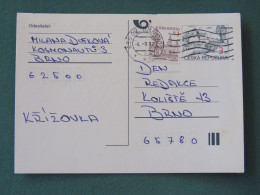 Odesílatel:
MILANA DUFKOVÁ
KOSMONAUTŮ 3
BRNO
62500
KŘÍŽOVKA
ČESKÁ REPUBLIKA
DEN
REDAKCE
KOLIŠTĚ 13
BRNO
65780